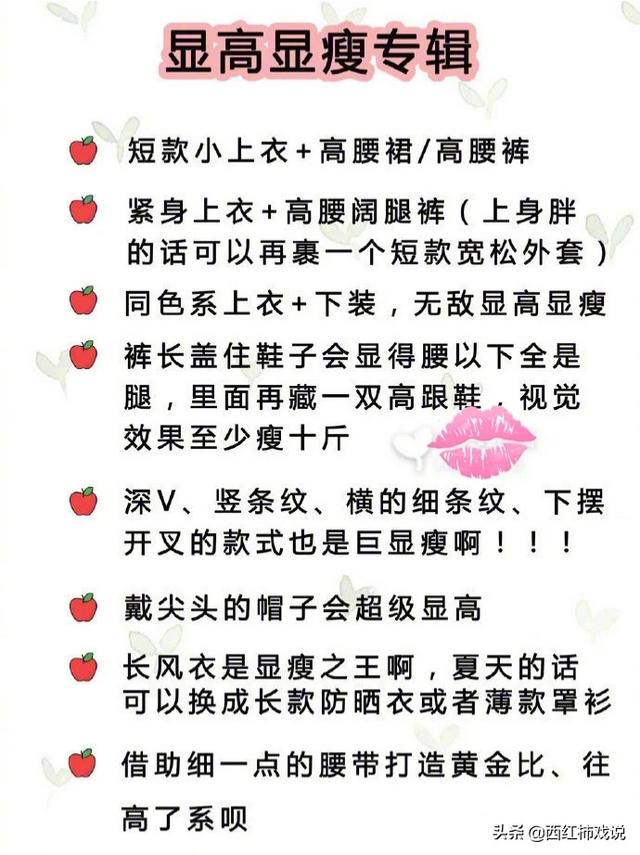 显高显瘦专辑
短款小上衣+高腰裙/高腰裤
紧身上衣+高腰阔腿裤（上身胖
的话可以再裹一个短款宽松外套）
同色系上衣+下装，无敌显高显瘦
裤长盖住鞋子会显得腰以下全是
腿，里面再藏一双高跟鞋，视觉
效果至少瘦十斤
深V、竖条纹、横的细条纹、下摆
开叉的款式也是巨显瘦啊！！！
戴尖头的帽子会超级显高
长风衣是显瘦之王啊，夏天的话
可以换成长款防晒衣或者薄款罩衫
借助细一点的腰带打造黄金比、往
高了系呗
头条 @西红柿戏说